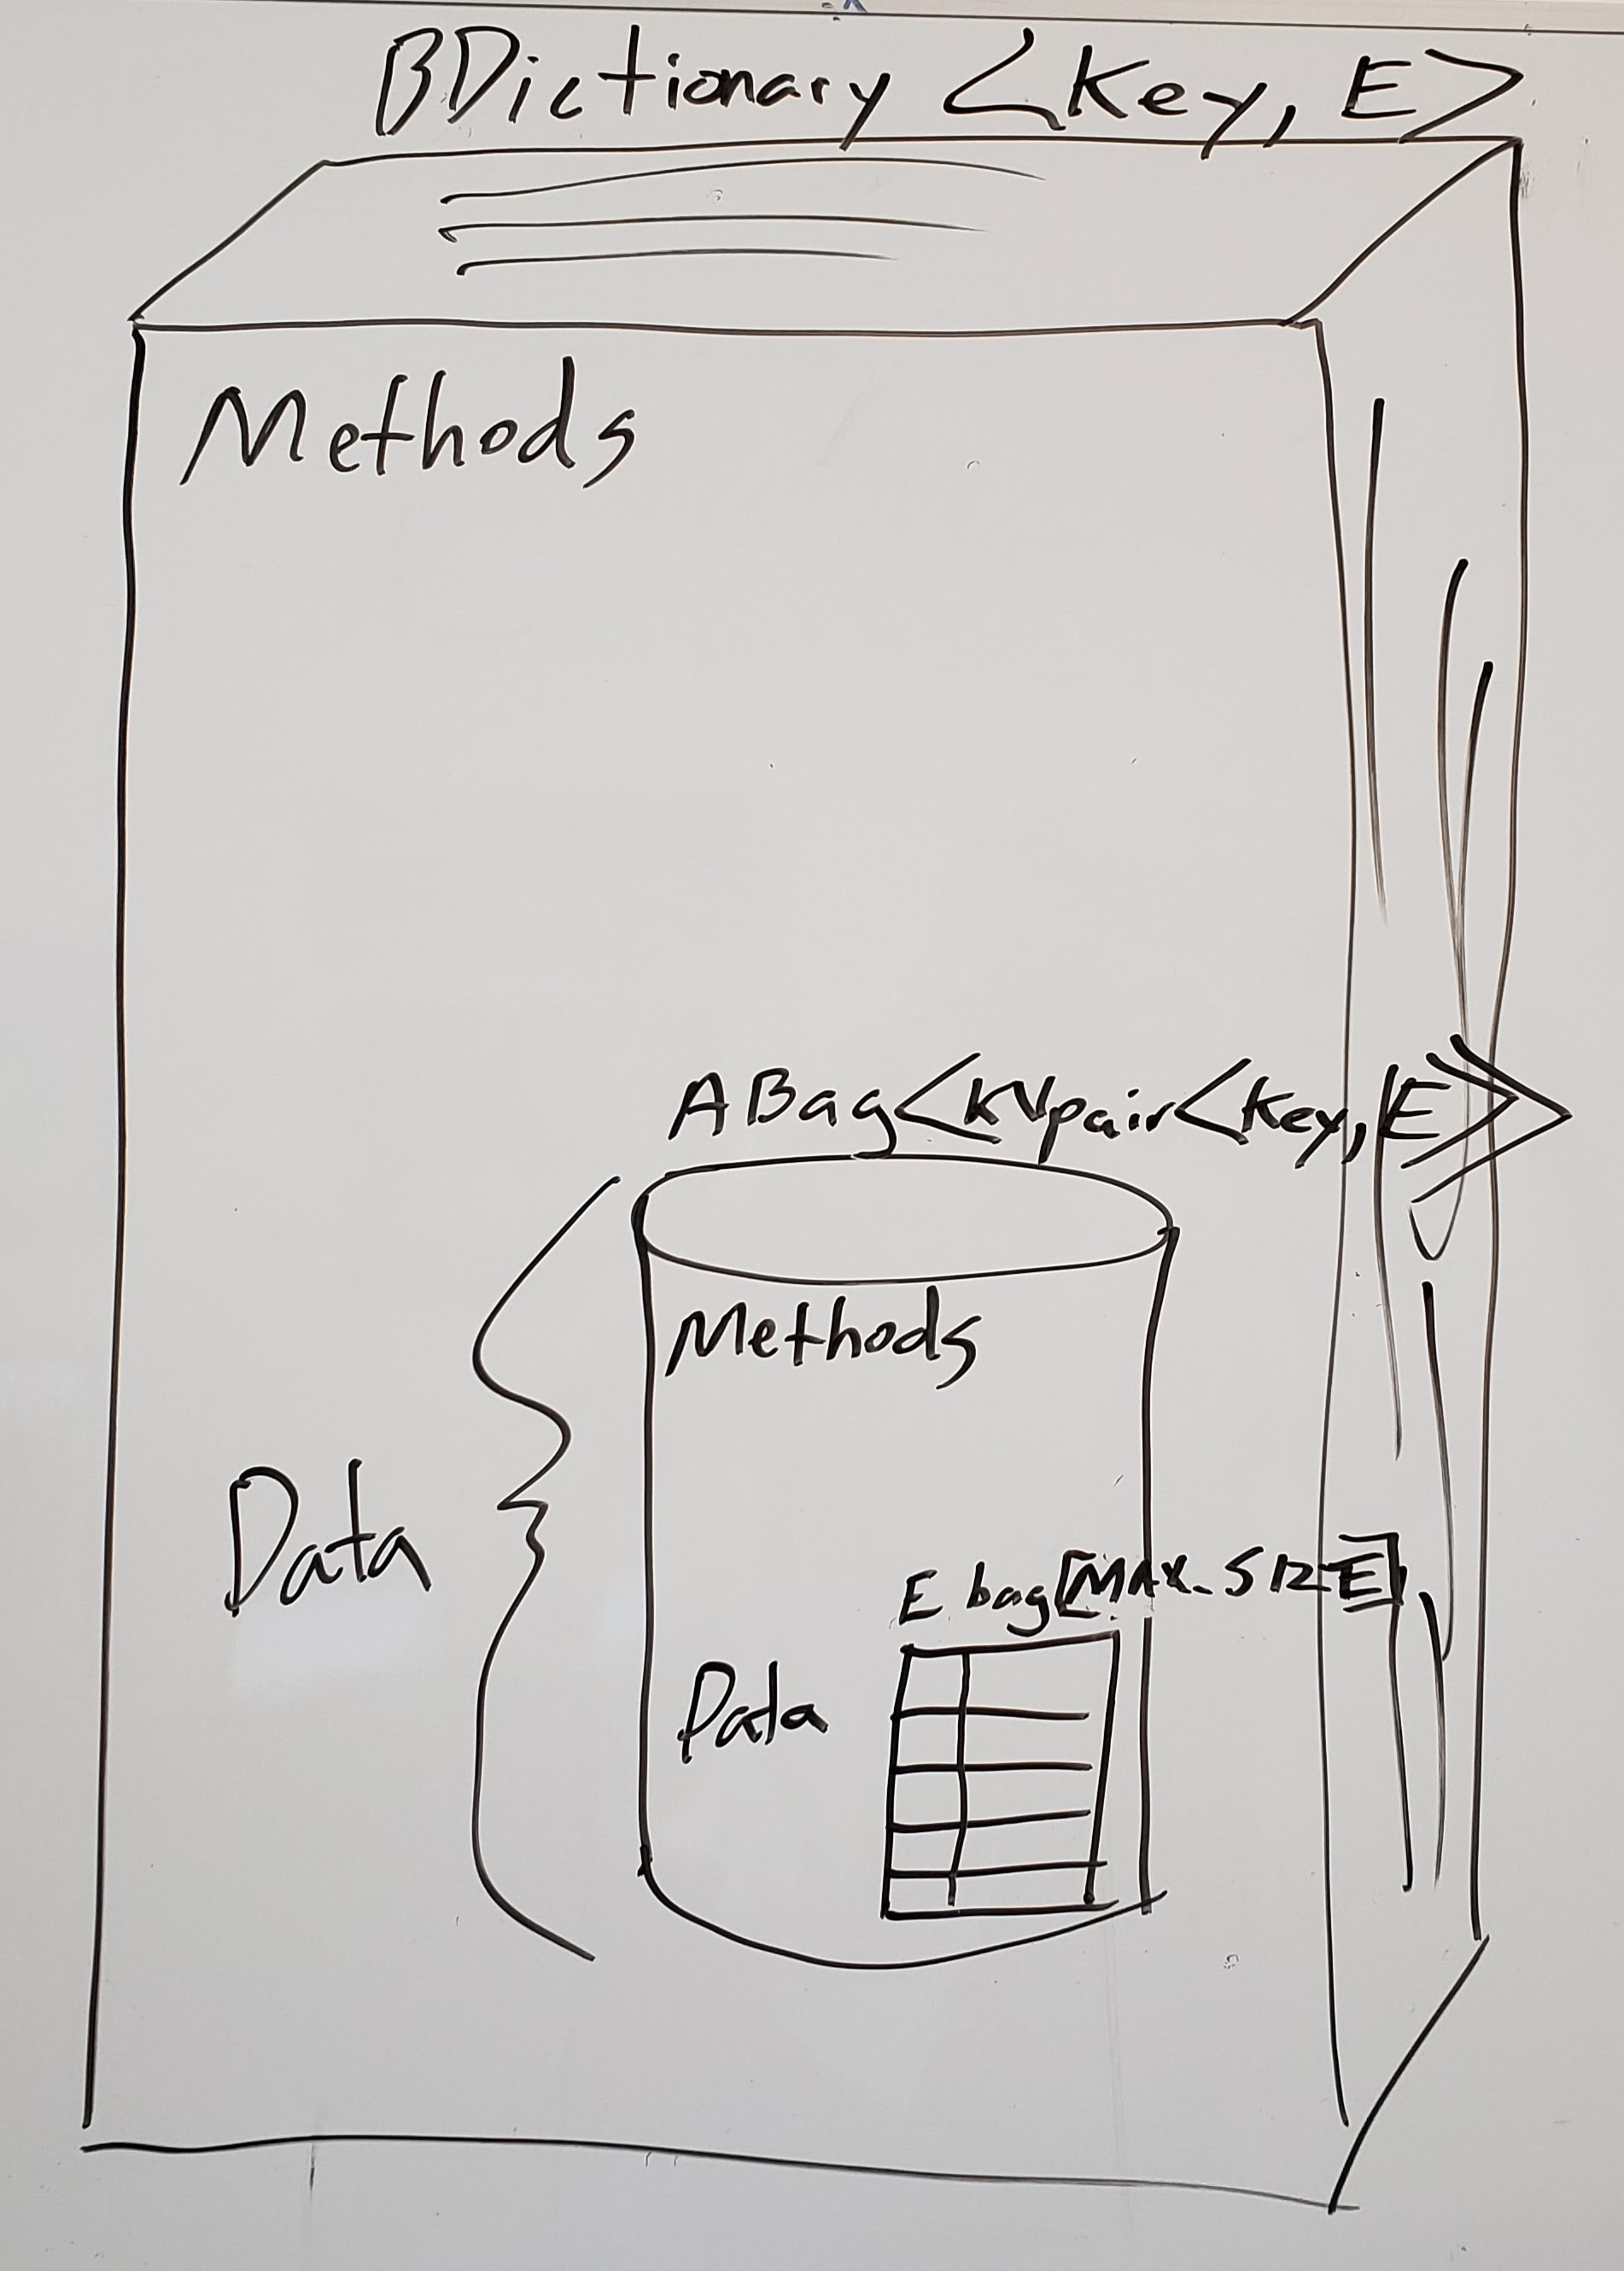 BDictionary <Key, E>
Methods
ABag<KVpair<Key, E>>
Methods
Data
E bag[MAX_SIZE]
Data